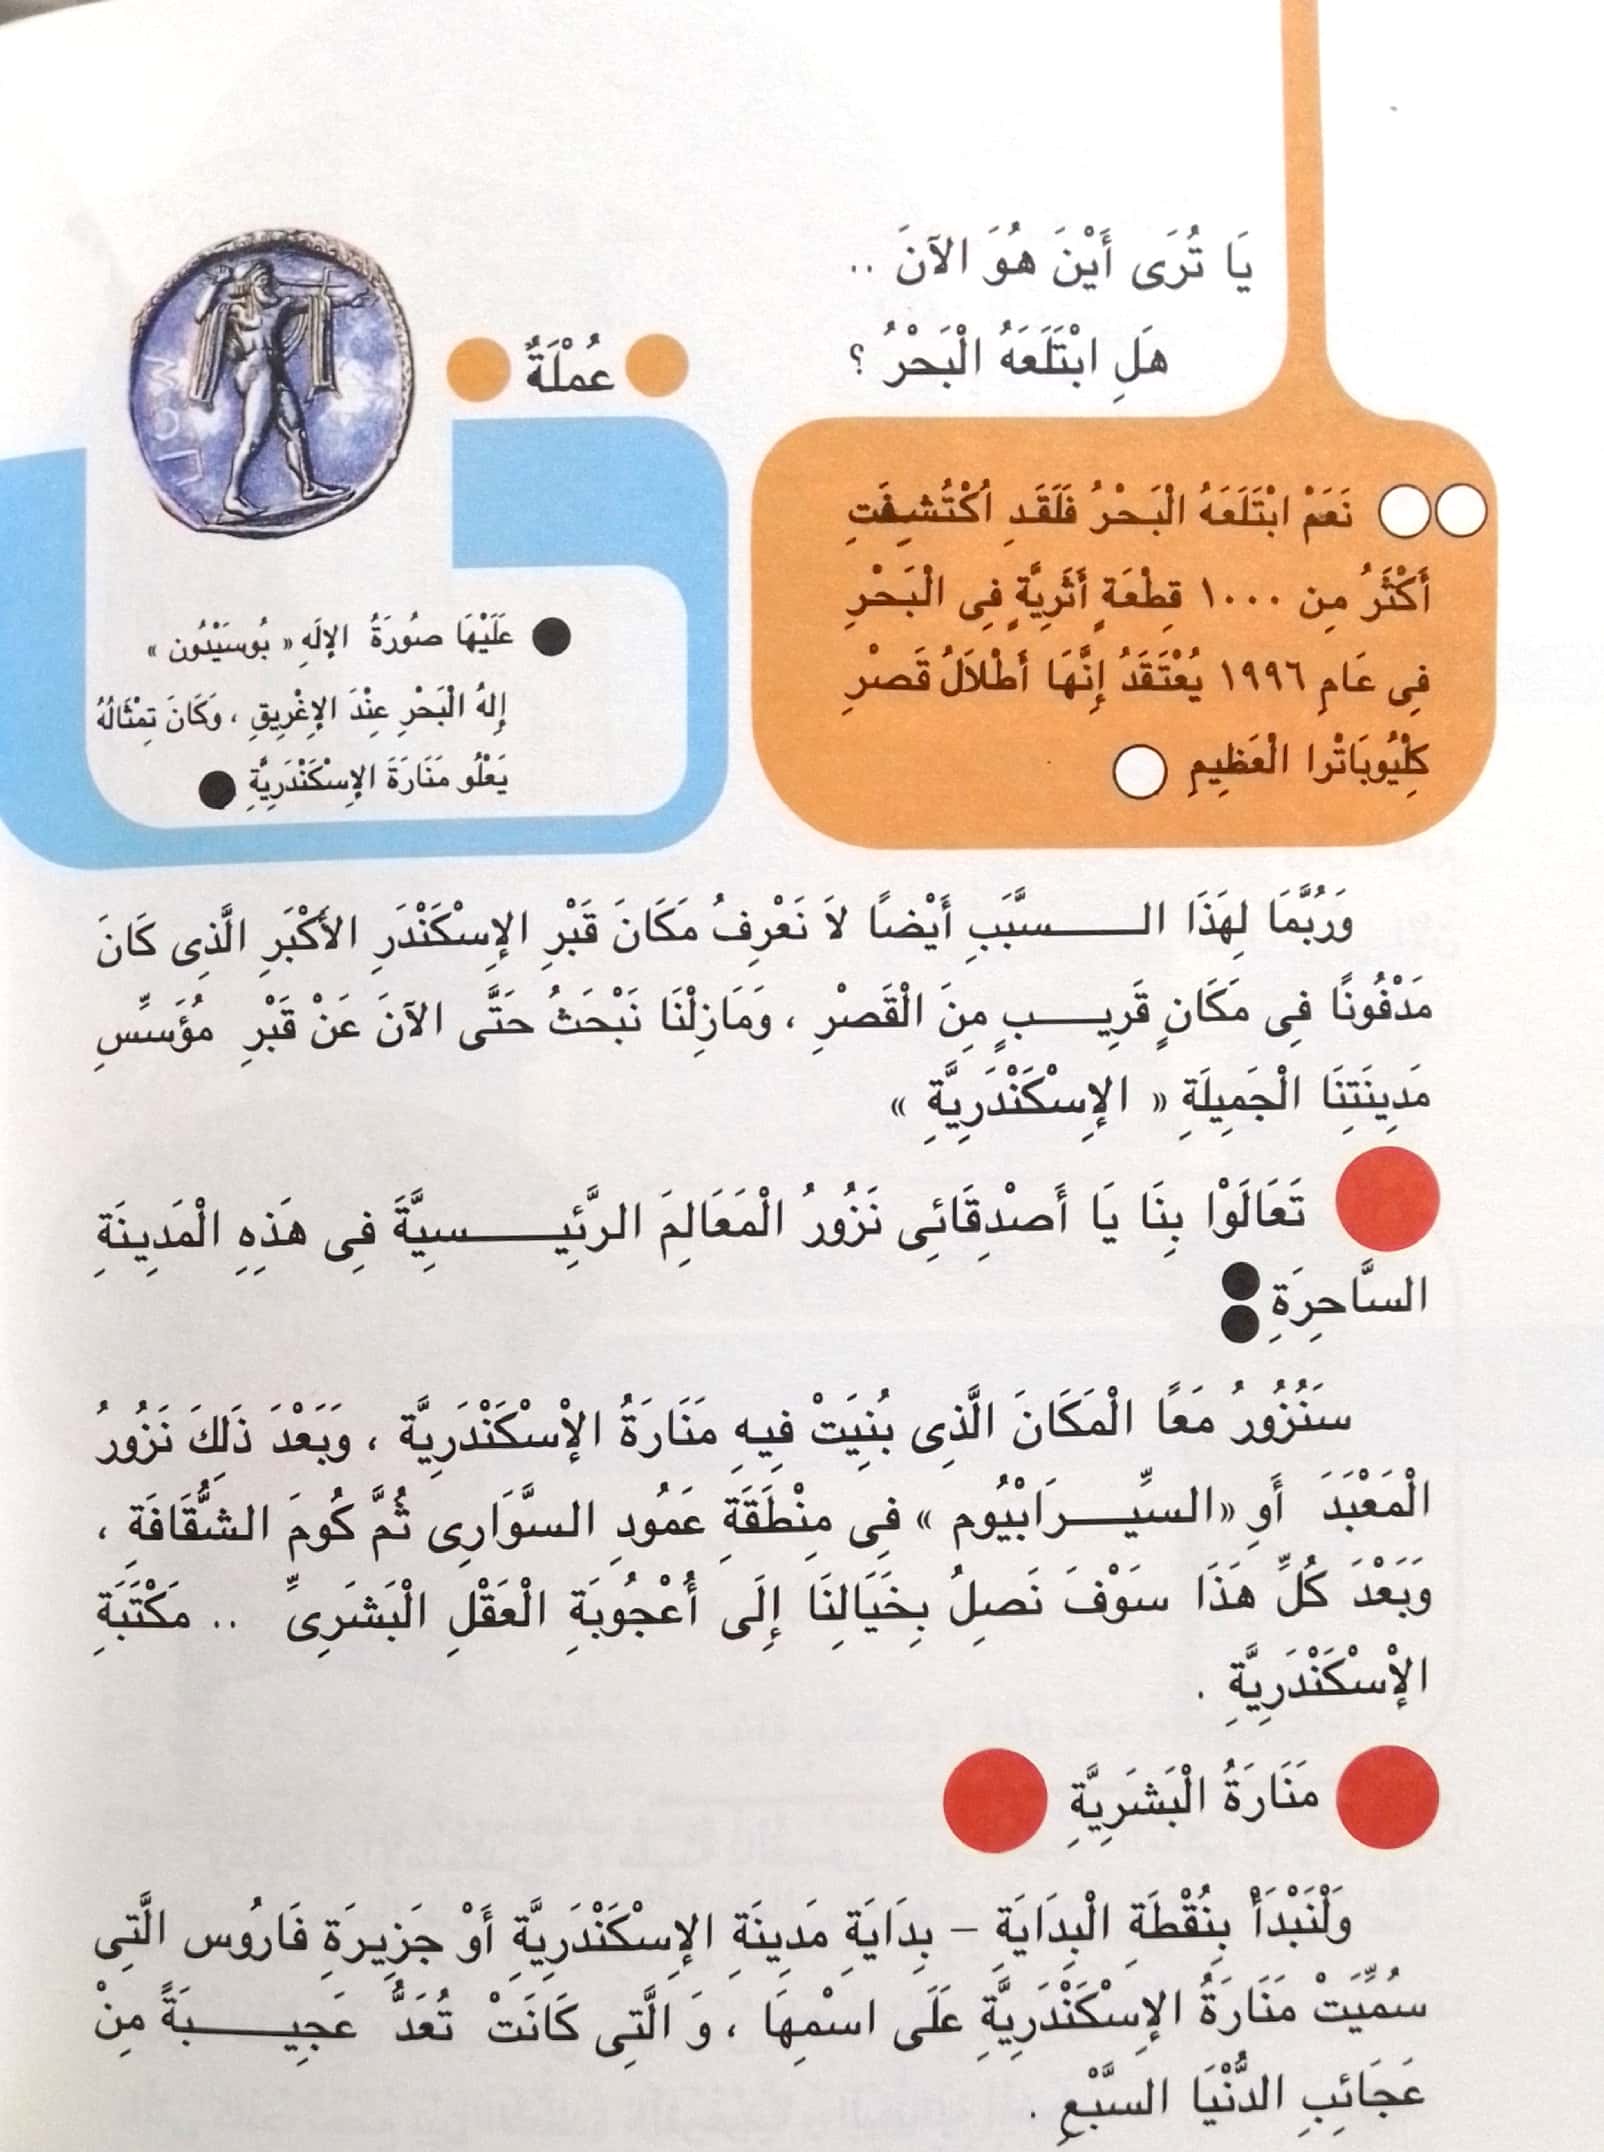 يَا تُرَى أَيْنَ هُوَ الآنَ ..
هَلِ ابْتَلَعَهُ الْبَحْرُ ؟
نَعَمْ ابْتَلَعَهُ الْبَحْرُ فَلَقَدِ اُكْتُشِفَتِ
أَكْثَرُ مِن ١٠٠٠ قِطْعَةٍ أَثَرِيَّةٍ فِى الْبَحْرِ
فِى عَامِ ١٩٩٦ يُعْتَقَدُ إِنَّهَا أَطْلاَلُ قَصْرِ
كِلْيُوبَاتْرا الْعَظِيمِ
عُمْلَةٌ
عَلَيْهَا صُورَةُ الإلَهِ « بُوسَيْدُون »
إِلهُ الْبَحْرِ عِنْدَ الإِغْرِيقِ ، وَكَانَ تِمْثَالُهُ
يَعْلُو مَنَارَةَ الإِسْكَنْدَرِيَّةِ
وَرُبَّمَا لِهَذَا الـــسَّبَبِ أَيْضاً لاَ نَعْرِفُ مَكَانَ قَبْرِ الإِسْكَنْدَرِ الأَكْبَرِ الَّذِى كَانَ
مَدْفُونًا فِى مَكَانٍ قَرِيـــبٍ مِنَ الْقَصْرِ ، وَمَازِلْنَا نَبْحَثُ حَتَّى الآنَ عَنْ قَبْرِ مُؤَسِّسِ
مَدِينَتِنَا الْجَمِيلَةِ « الإِسْكَنْدَرِيَّةِ »
تَعَالَوْا بِنَا يَا أَصْدِقَائِى نَزُورُ الْمَعَالِمَ الرَّئِيـــسِيَّةَ فِى هَذِهِ الْمَدِينَةِ
السَّاحِرَةِ
سَنُزُورُ مَعًا الْمَكَانَ الَّذِى بُنِيَتْ فِيهِ مَنَارَةُ الإْسْكَنْدَرِيَّة ، وَبَعْدَ ذَلِكَ نَزُورُ
الْمَعْبَدَ أَوِ «السِّيـــرَابْيُوم » فِى مِنْطَقَةِ عَمُودِ السَّوَارِى ثُمَّ كُومَ الشُّقَافَةِ ،
وَبَعْدَ كُلِّ هَذَا سَوْفَ نَصِلُ بِخَيَالِنَا إِلَى أُعْجُوبَةِ الْعَقْلِ الْبَشَرِىِّ .. مَكْتَبَةِ
الإْسْكَنْدَرِيَّةِ .
مَنَارَةُ الْبَشَرِيَّةِ
وَلْنَبْدَأْ بِنُقْطَةِ الْبِدَايَةِ – بِدَايَةِ مَدِينَةِ الإِسْكَنْدَرِيَّةِ أَوْ جَزِيرَةِ فَارُوس الَّتِى
سُمِّيَتْ مَنَارَةُ الإِسْكَنْدَرِيَّةِ عَلَى اسْمِهَا ، وَ الَّتِى كَانَتْ تُعَدُّ عَجِيـــبَةً مِنْ
عَجَائِبِ الدُّنْيَا السَّبْعِ .